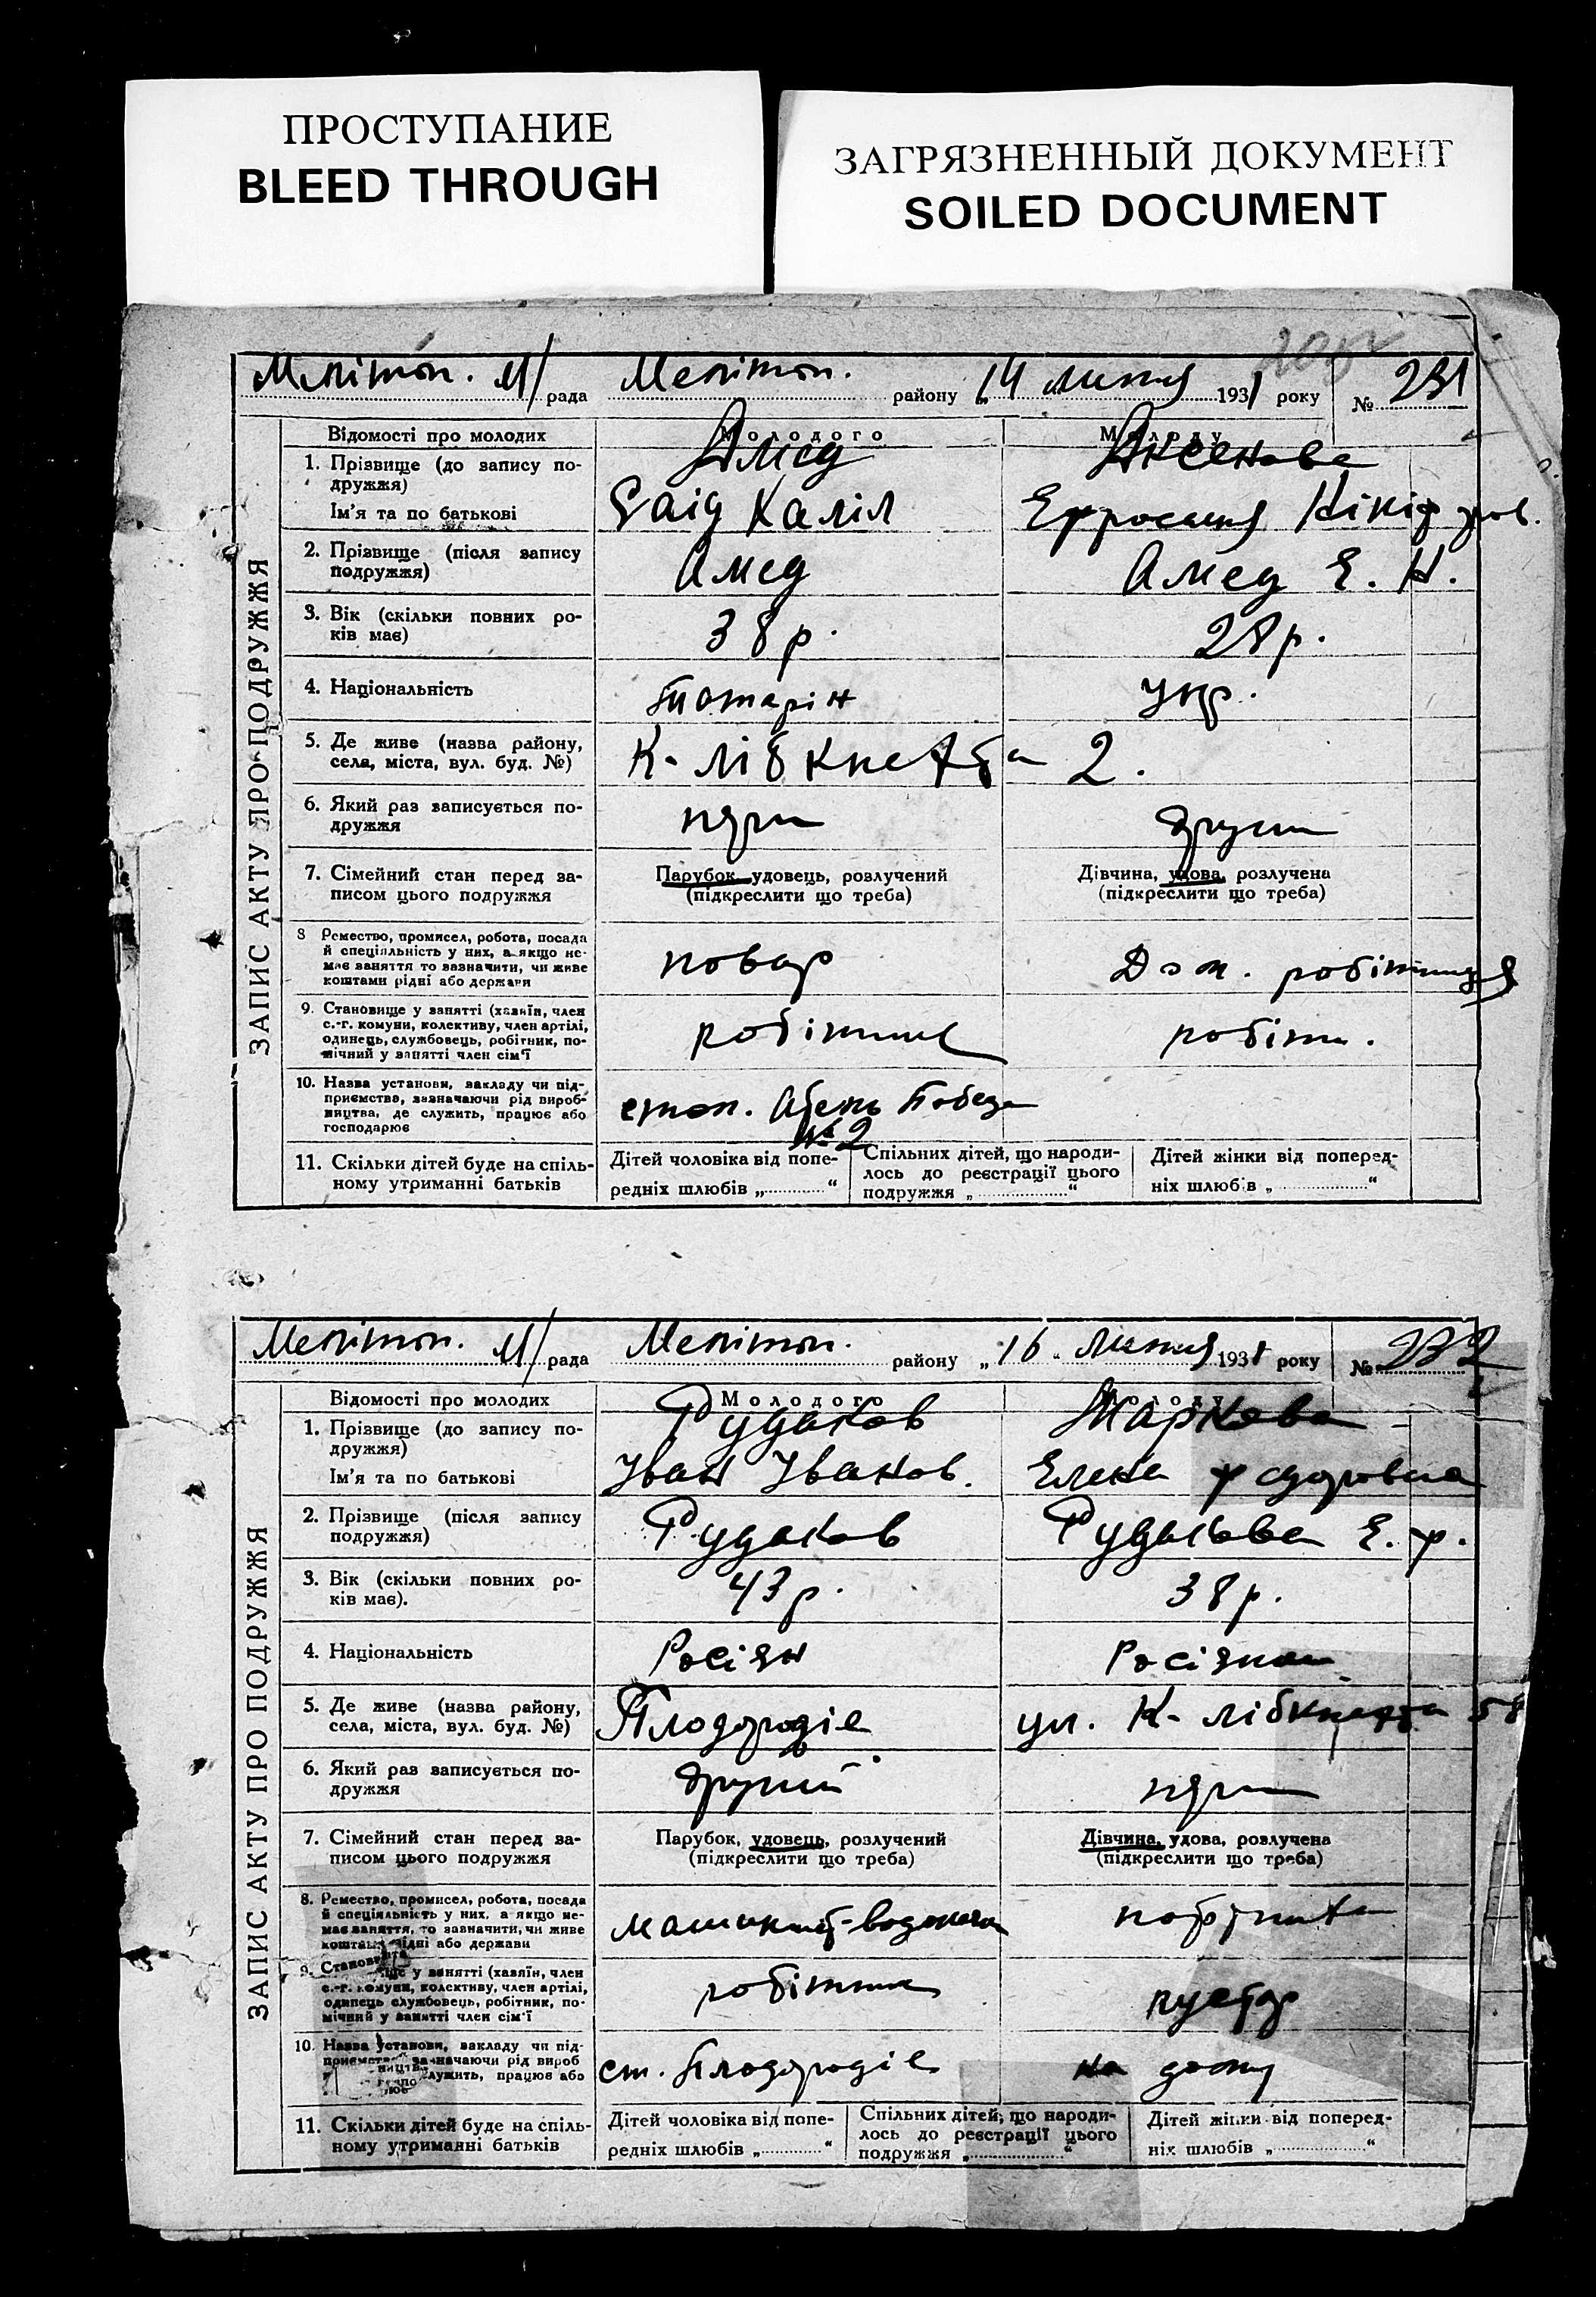 ПРОСТУПАНИЕ
BLEED THROUGH
ЗАГРЯЗНЕННЫЙ ДОКУМЕНТ
SOILED DOCUMENT
Мелітоп. М/рада Мелітоп. району „14 липня 1931 року № 231
ЗАПИС АКТУ ПРО ПОДРУЖЖЯ
Відомості про молодих Молодого Молоду
1. Прізвище (до запису по-
дружжя)
Амед Аксенова
Ім'я та по батькові Саід Халіл Ефросинія Нікіфоров.
2. Прізвище (після запису
подружжя)
Амед Амед Е. Н.
3. Вік (скільки повних ро-
ків має)
38 р. 28 р.
4. Національність Татарін укр.
5. Де живе (назва району,
села, міста, вул. буд. №)
К. Лібкнехта 2.
6. Який раз записується по-
дружжя
перш другий
7. Сімейний стан перед за-
писом цього подружжя
Парубок, удовець, розлучений
(підкреслити що треба)
Дівчина, удова, розлучена
(підкреслити що треба)
8 Ремество, промисел, робота, посада
й спеціяльність у них, а якщо не-
має заняття то зазначити, чи живе
коштами рідні або держави
повар Дом. робітниця
9. Становище у занятті (хазяїн, член
с.-г. комуни, колективу, член артілі,
одинець, службовець, робітник, по-
мічний у занятті член сім'ї
робітник робітн.
10. Назва установи, закладу чи під-
приємства, зазначаючи рід вироб-
ництва, де служить, працює або
господарює
№ 2
11. Скільки дітей буде на спіль-
ному утриманні батьків
Дітей чоловіка від попе-
редніх шлюбів „ “
Спільних дітей, що народи-
лось до реєстрації цього
подружжя „ “
Дітей жінки від поперед-
ніх шлюбів „ “
Мелітоп. М/рада Мелітоп. району „16 липня 1931 року № 232
ЗАПИС АКТУ ПРО ПОДРУЖЖЯ
Відомості про молодих Молодого Молоду
1. Прізвище (до запису по-
дружжя)
Рудаков Маркова
Ім'я та по батькові Іван Іванов. Елена Федоровна
2. Прізвище (після запису
подружжя)
Рудаков Рудакова Е. Ф.
3. Вік (скільки повних ро-
ків має).
43 р. 38 р.
4. Національність Росіян Росіянка
5. Де живе (назва району,
села, міста, вул. буд. №)
Плодородіе ул. К. Лібкнехта 58
6. Який раз записується по-
дружжя
другий перш
7. Сімейний стан перед за-
писом цього подружжя
Парубок, удовець, розлучений
(підкреслити що треба)
Дівчина, удова, розлучена
(підкреслити що треба)
8. Ремество, промисел, робота, посада
й спеціяльність у них, а якщо не-
має заняття, то зазначити, чи живе
коштами рідні або держави
машиніст-водокачк
9. Становище у занятті (хазяїн, член
с.-г. комуни, колективу, член артілі,
одинець службовець, робітник, по-
мічний у занятті член сім'ї
робітник кустар
10. Назва установи, закладу чи під-
приємства, зазначаючи рід вироб
служить, працює або
ст. Плодородіе на дому
11. Скільки дітей буде на спіль-
ному утриманні батьків
Дітей чоловіка від попе-
редніх шлюбів „ “
Спільних дітей, що народи-
лось до реєстрації цього
подружжя „ “
Дітей жінки від поперед-
ніх шлюбів „ “